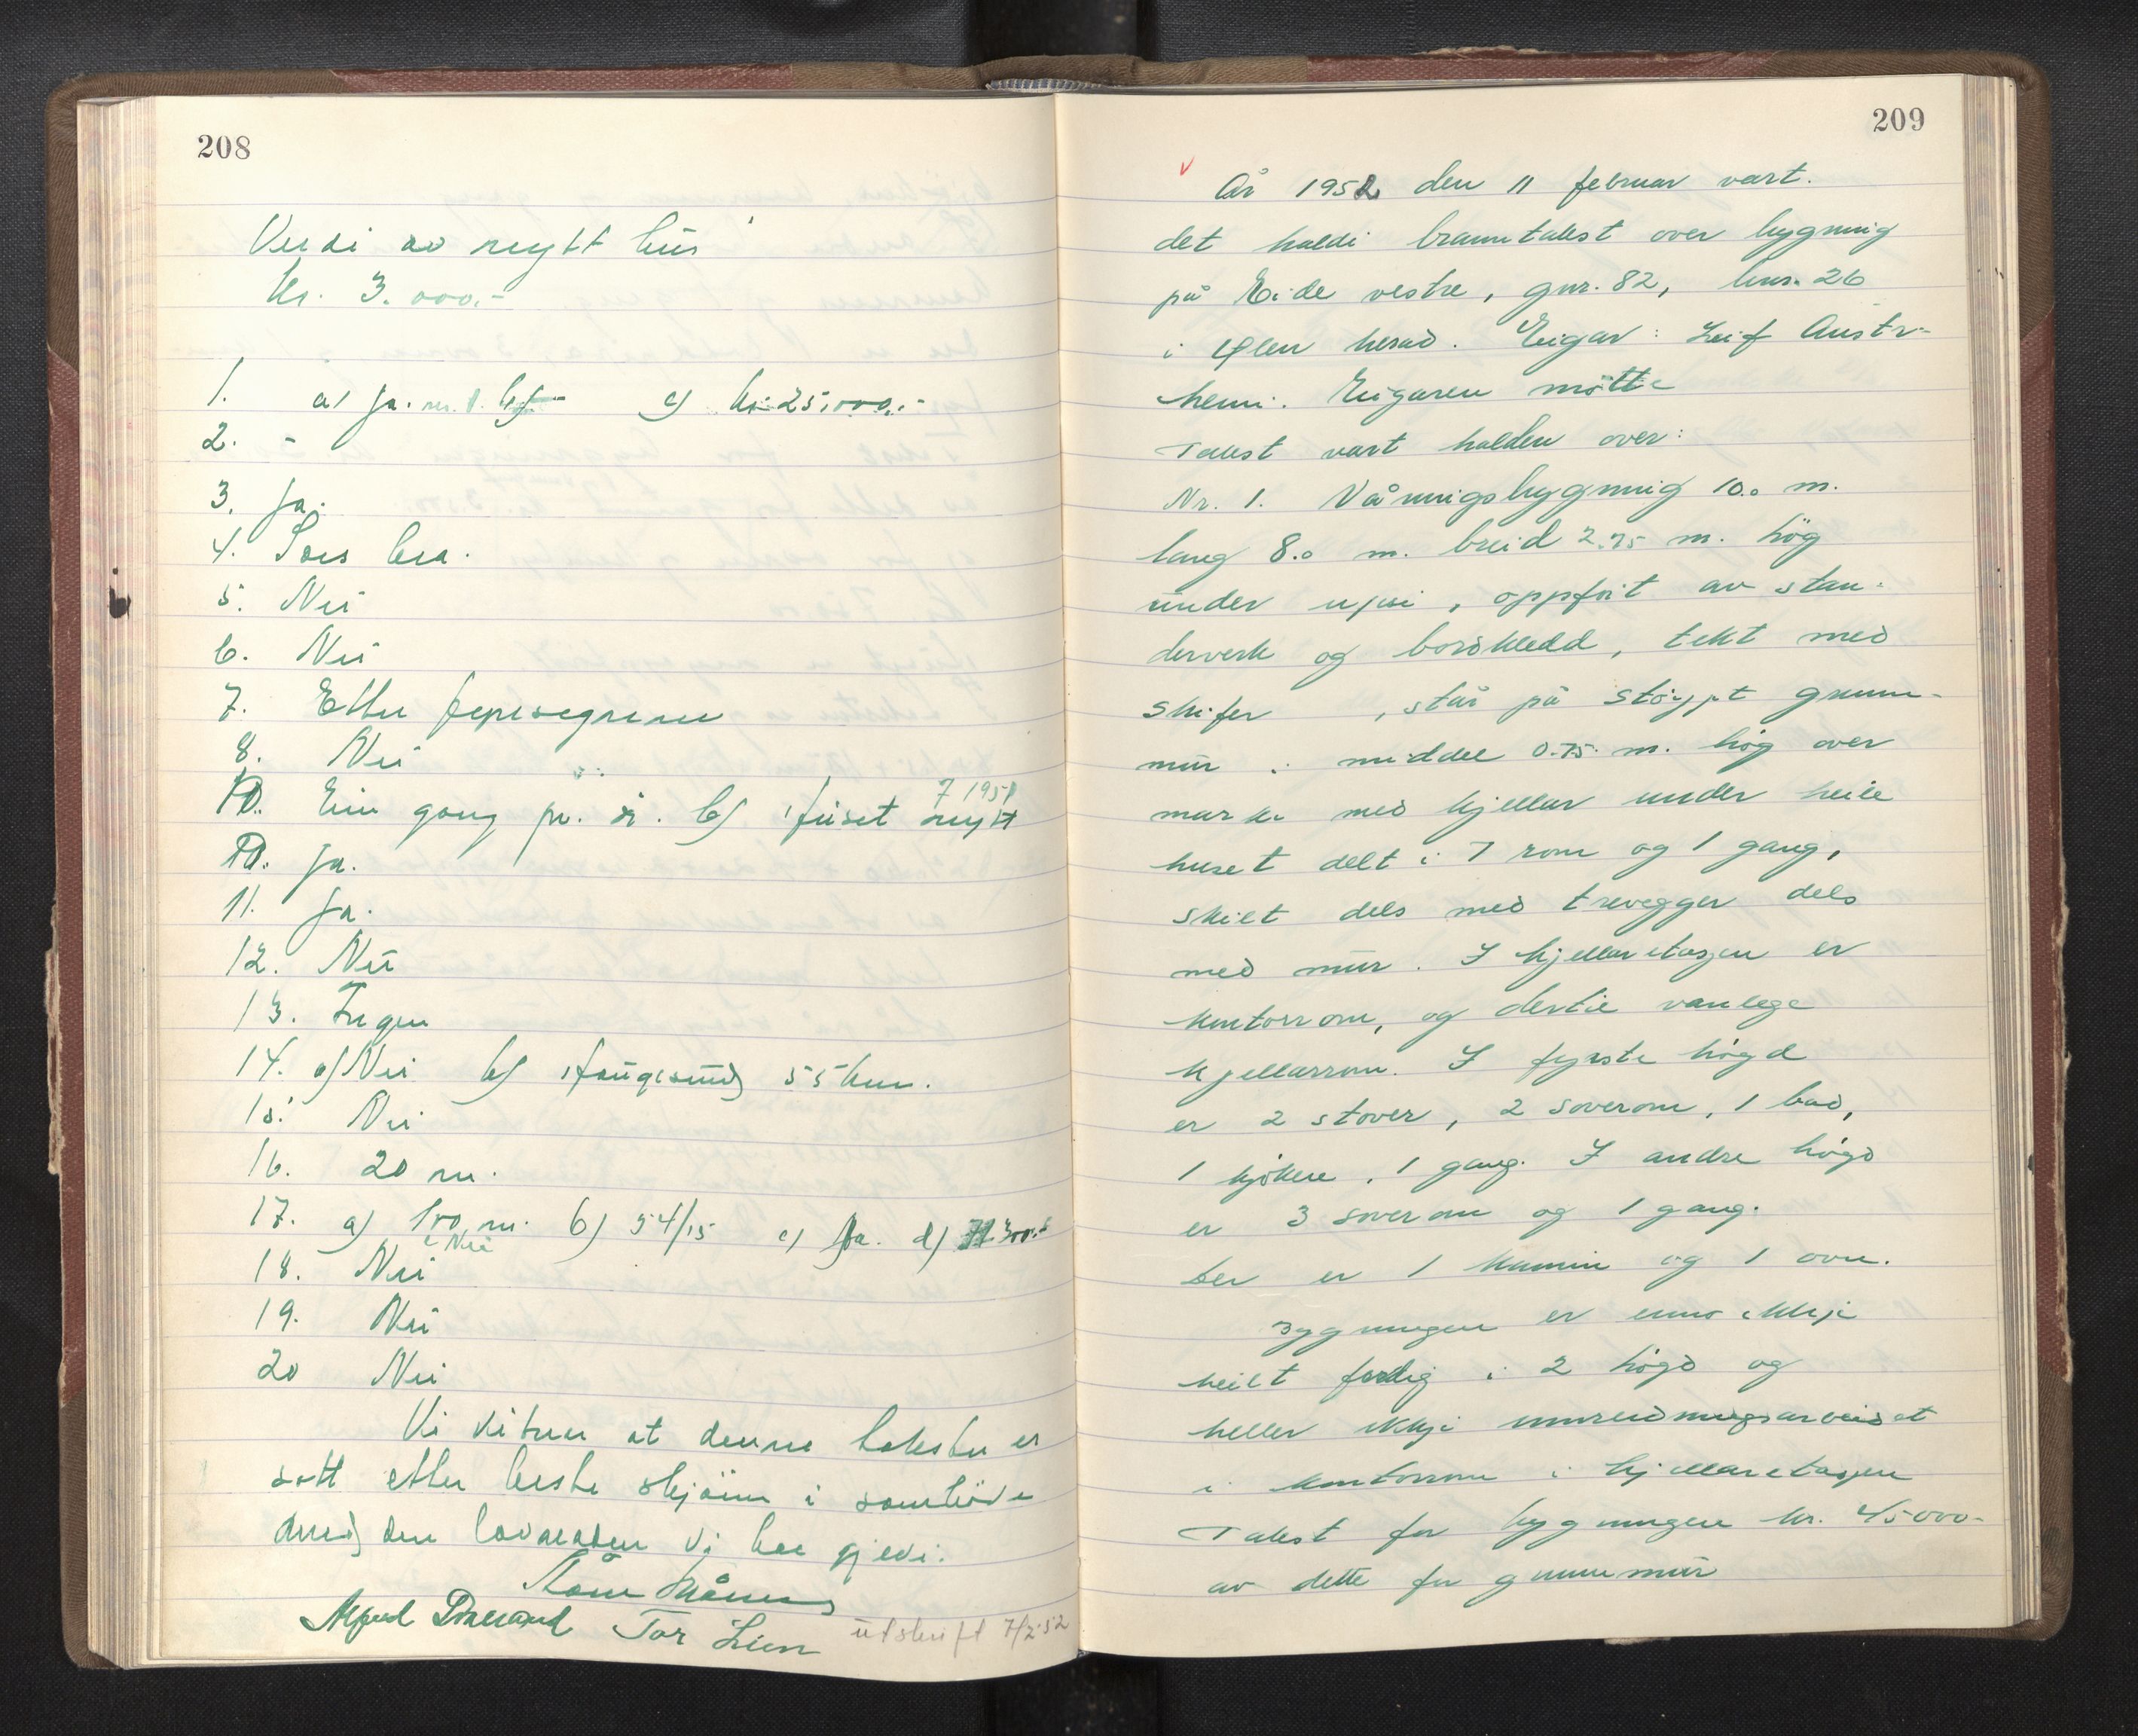 208
Verdi av nytt hus
kr. 3.000.-
1. a) Ja. nr. 1. c) kr. 25.000.-
2. -
3. Ja.
4. Sers bra.
5. Nei
6. Nei
7. Etter
8. Nei
Ein gong pr. år. b) Huset nytt
7 1951
10. Ja.
11. Ja.
12. Nei
13. Ingen
14. a) Nei b) Haugesund 55 km.
15. Nei
16. 20 m.
17. a) 100 m. b) 54/15 c) Ja. d) 300.-
e Nei
18. Nei
19. Nei
20 Nei
Vi vitnar at denne taksten er
sett etter beste skjøn i samhøve
med den lovnaden vi har gjevi.
Alfred Tor Lien utskrift 7/2 52
209
v
År 1952 den 11 februar vart.
det haldi branntakst over bygning
på Eide vestre, gnr. 82, bnr. 26
i Ølen herad. Eigar: Leif Austr-
heim. Eigaren møtte
Takst vart halden over:
Nr. 1. Våningsbygning 10.0 m.
lang 8.0 m. breid 2.75 m. høg
under upsi, oppført av stan-
derverk og bordkledd, tekt med
Skifer , står på støypt grunn-
mur i middel 0.75 m. høg over
mark med kjellar under heile
huset delt i 7 rom og 1 gang,
skilt dels med trevegger dels
med mur. I kjellaretasjen er
kontorrom, og dertil vanlege
kjellarrom. I fyrste høgd
er 2 stover, 2 soverom, 1 bad,
1 kjøken, 1 gang. I andre høgd
er 3 soverom og 1 gang.
Der er 1 kamin og 1 ovn.
Bygningen er enno ikkje
heilt ferdig i 2 høgd og
heller ikkje innreidningsarbeidet
i kontorrom i kjellaretasjen
Takst for bygningen kr. 45000-
av dette for grunnmur